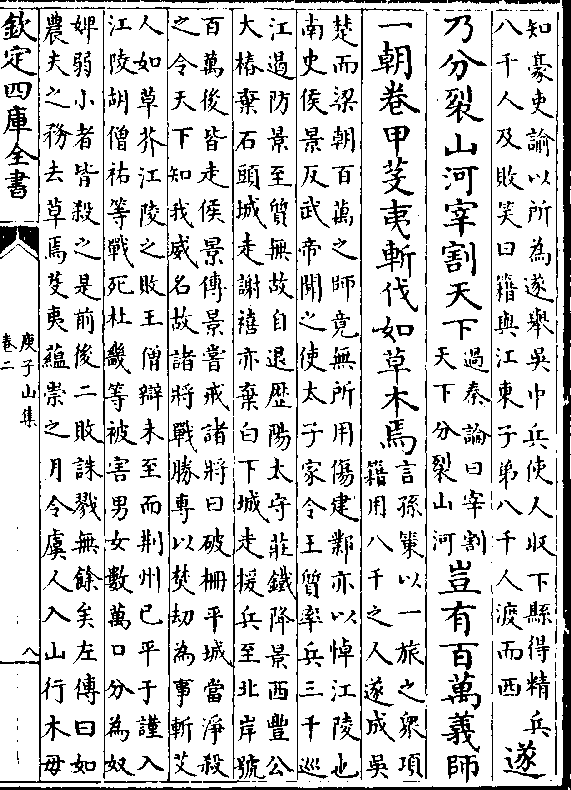 知豪吏諭以所為遂舉吳中兵使人收下縣得精兵
八千人及敗笑曰籍與江東子弟八千人渡而西
遂
乃分裂山河宰割天下
過秦論曰宰割
天下分裂山河
豈有百萬義師
一朝卷甲芟夷斬伐如草木焉
言孫策以一旅之衆項
籍用八千之人遂成吳
楚而梁朝百萬之師竟無所用傷建鄴亦以悼江陵也
南史侯景反武帝聞之使太子家令王質率兵三千巡
江遏防景至質無故自退歴陽太守莊鐵降景西豐公
大椿棄石頭城走謝禧亦棄白下城走援兵至北岸號
百萬後皆走侯景傳景嘗戒諸將曰破柵平城當淨殺
之令天下知我威名故諸將戰勝專以焚刼為事斬艾
人如草芥江陵之敗王僧辯未至而荆州已平于謹入
江陵胡僧祐等戰死杜畿等被害男女數萬口分為奴
婢弱小者皆殺之是前後二敗誅戮無餘矣左傳曰如
農夫之務去草焉芟夷蘊崇之月令虞人入山行木毋
欽定四庫全書
庾子山集
卷二
八